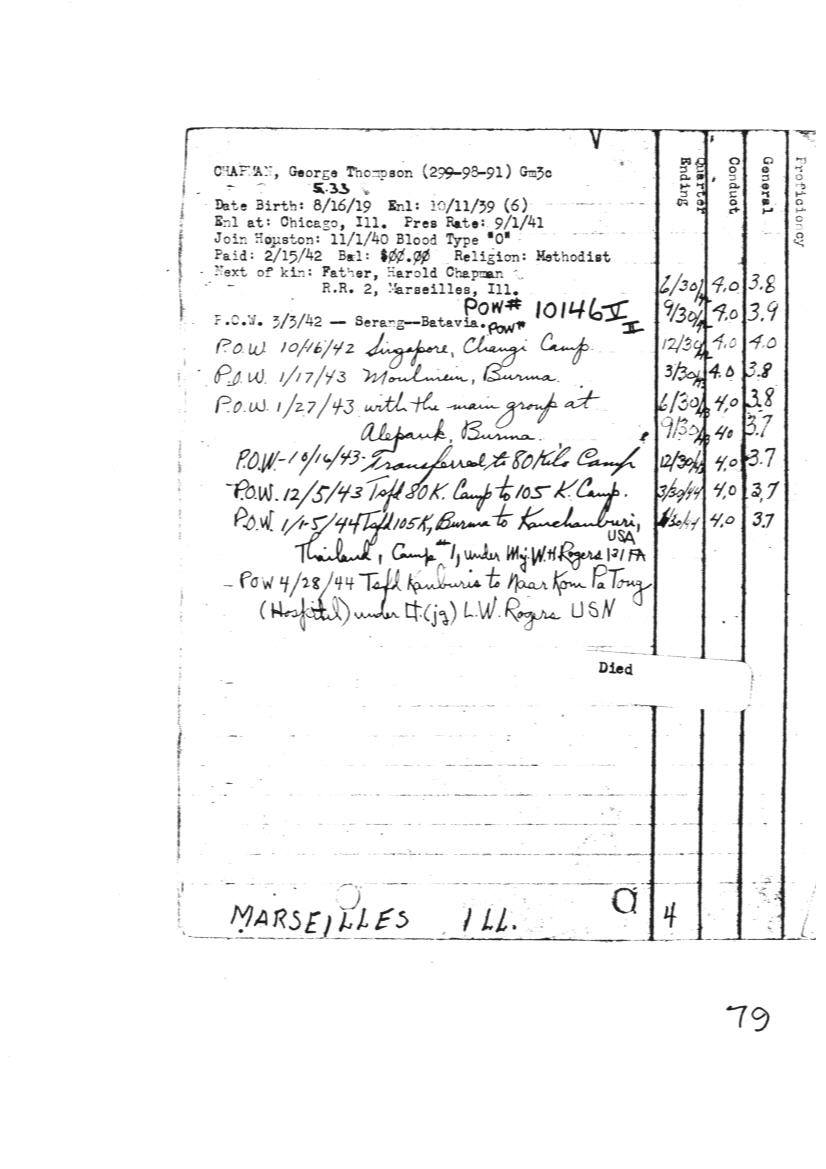 CHAPMAN, George Thompson (299-98-91) Gm3c
5.33
Date Birth: 8/16/19 Enl: 10/11/39 (6)
Enl at: Chicago, Ill. Pres Rate: 9/1/41
Join Houston: 11/1/40 Blood Type "O"
Paid: 2/15/42 Bal: $00.00 Religion: Methodist
Next of kin: Father, Harold Chapman
R.R. 2, Marseilles, Ill.
POW# 10146 V
II
P.O.W. 3/3/42 — Serang--Batavia. POW#
P.O.W. 10/16/42 Singapore, Changi Camp
P.O.W. 1/17/43 Moulmein, Burma
P.O.W. 1/27/43 with the main group at
Alepauk, Burma.
P.O.W-10/16/43-Transferred to 80 Kilo Camp
P.O.W. 12/5/43 Tsfd 80K. Camp to 105 K. Camp.
P.O.W. 1/1-5/44 Tsfd 105K, Burma to Kanchanburi,
Thailand, Camp #1, under Mj. W.H Rogers 131 FA
USA
POW 4/28/44 Tsfd Kanburis to Naar Kom Pa Tong
(Hospital) under Lt.(jg) L.W. Rogers USN
Died
MARSEILLES ILL.
Quarter Ending Conduct General Proficiency
6/30/42 4.0 3.8
9/30/42 4.0 3.9
12/30/42 4.0 4.0
3/30/43 4.0 3.8
6/30/43 4.0 3.8
9/30/43 40 3.7
12/30/43 4.0 3.7
3/30/44 4.0 3.7
/30/44 4.0 3.7
4
79